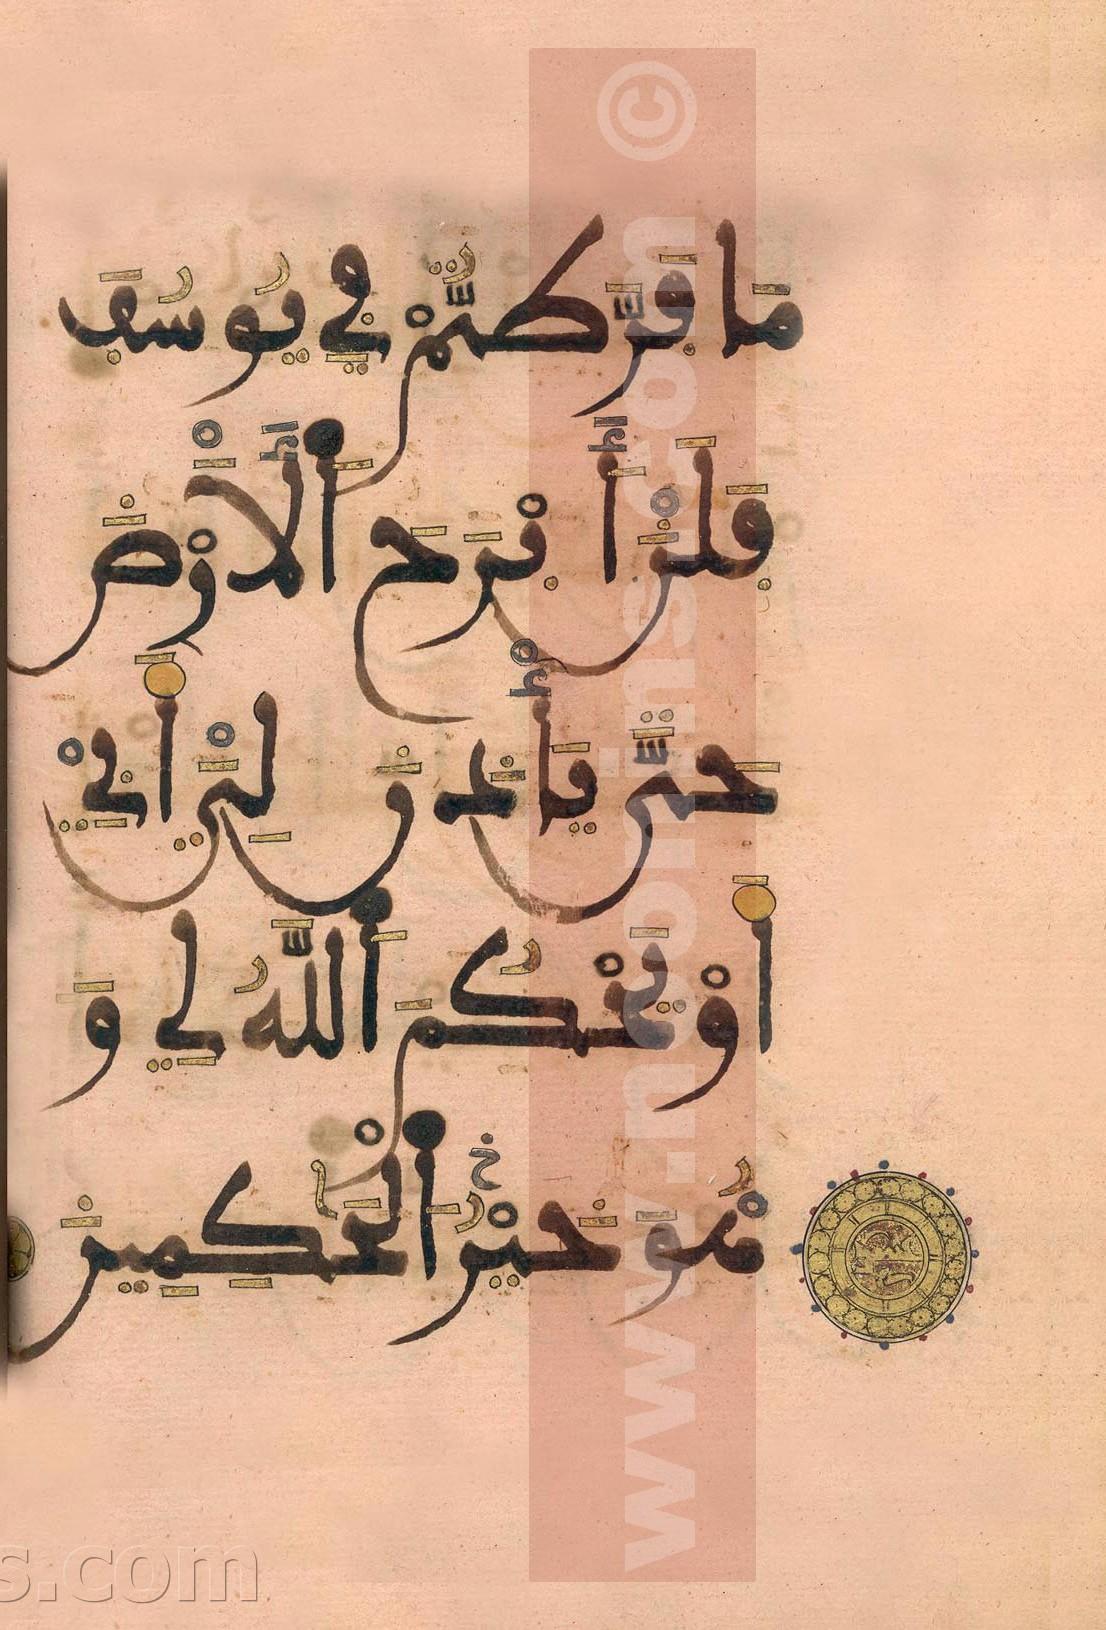 مَا فَرَّطتُّمْ فِي يُوسُفَ
فَلَنْ أَبْرَحَ الْأَرْضَ
حَتَّىٰ يَأْذَنَ لِي أَبِي
أَوْ يَحْكُمَ اللَّهُ لِي وَ
هُوَ خَيْرُ الْحَاكِمِينَ
© www.noonins.com
s.com